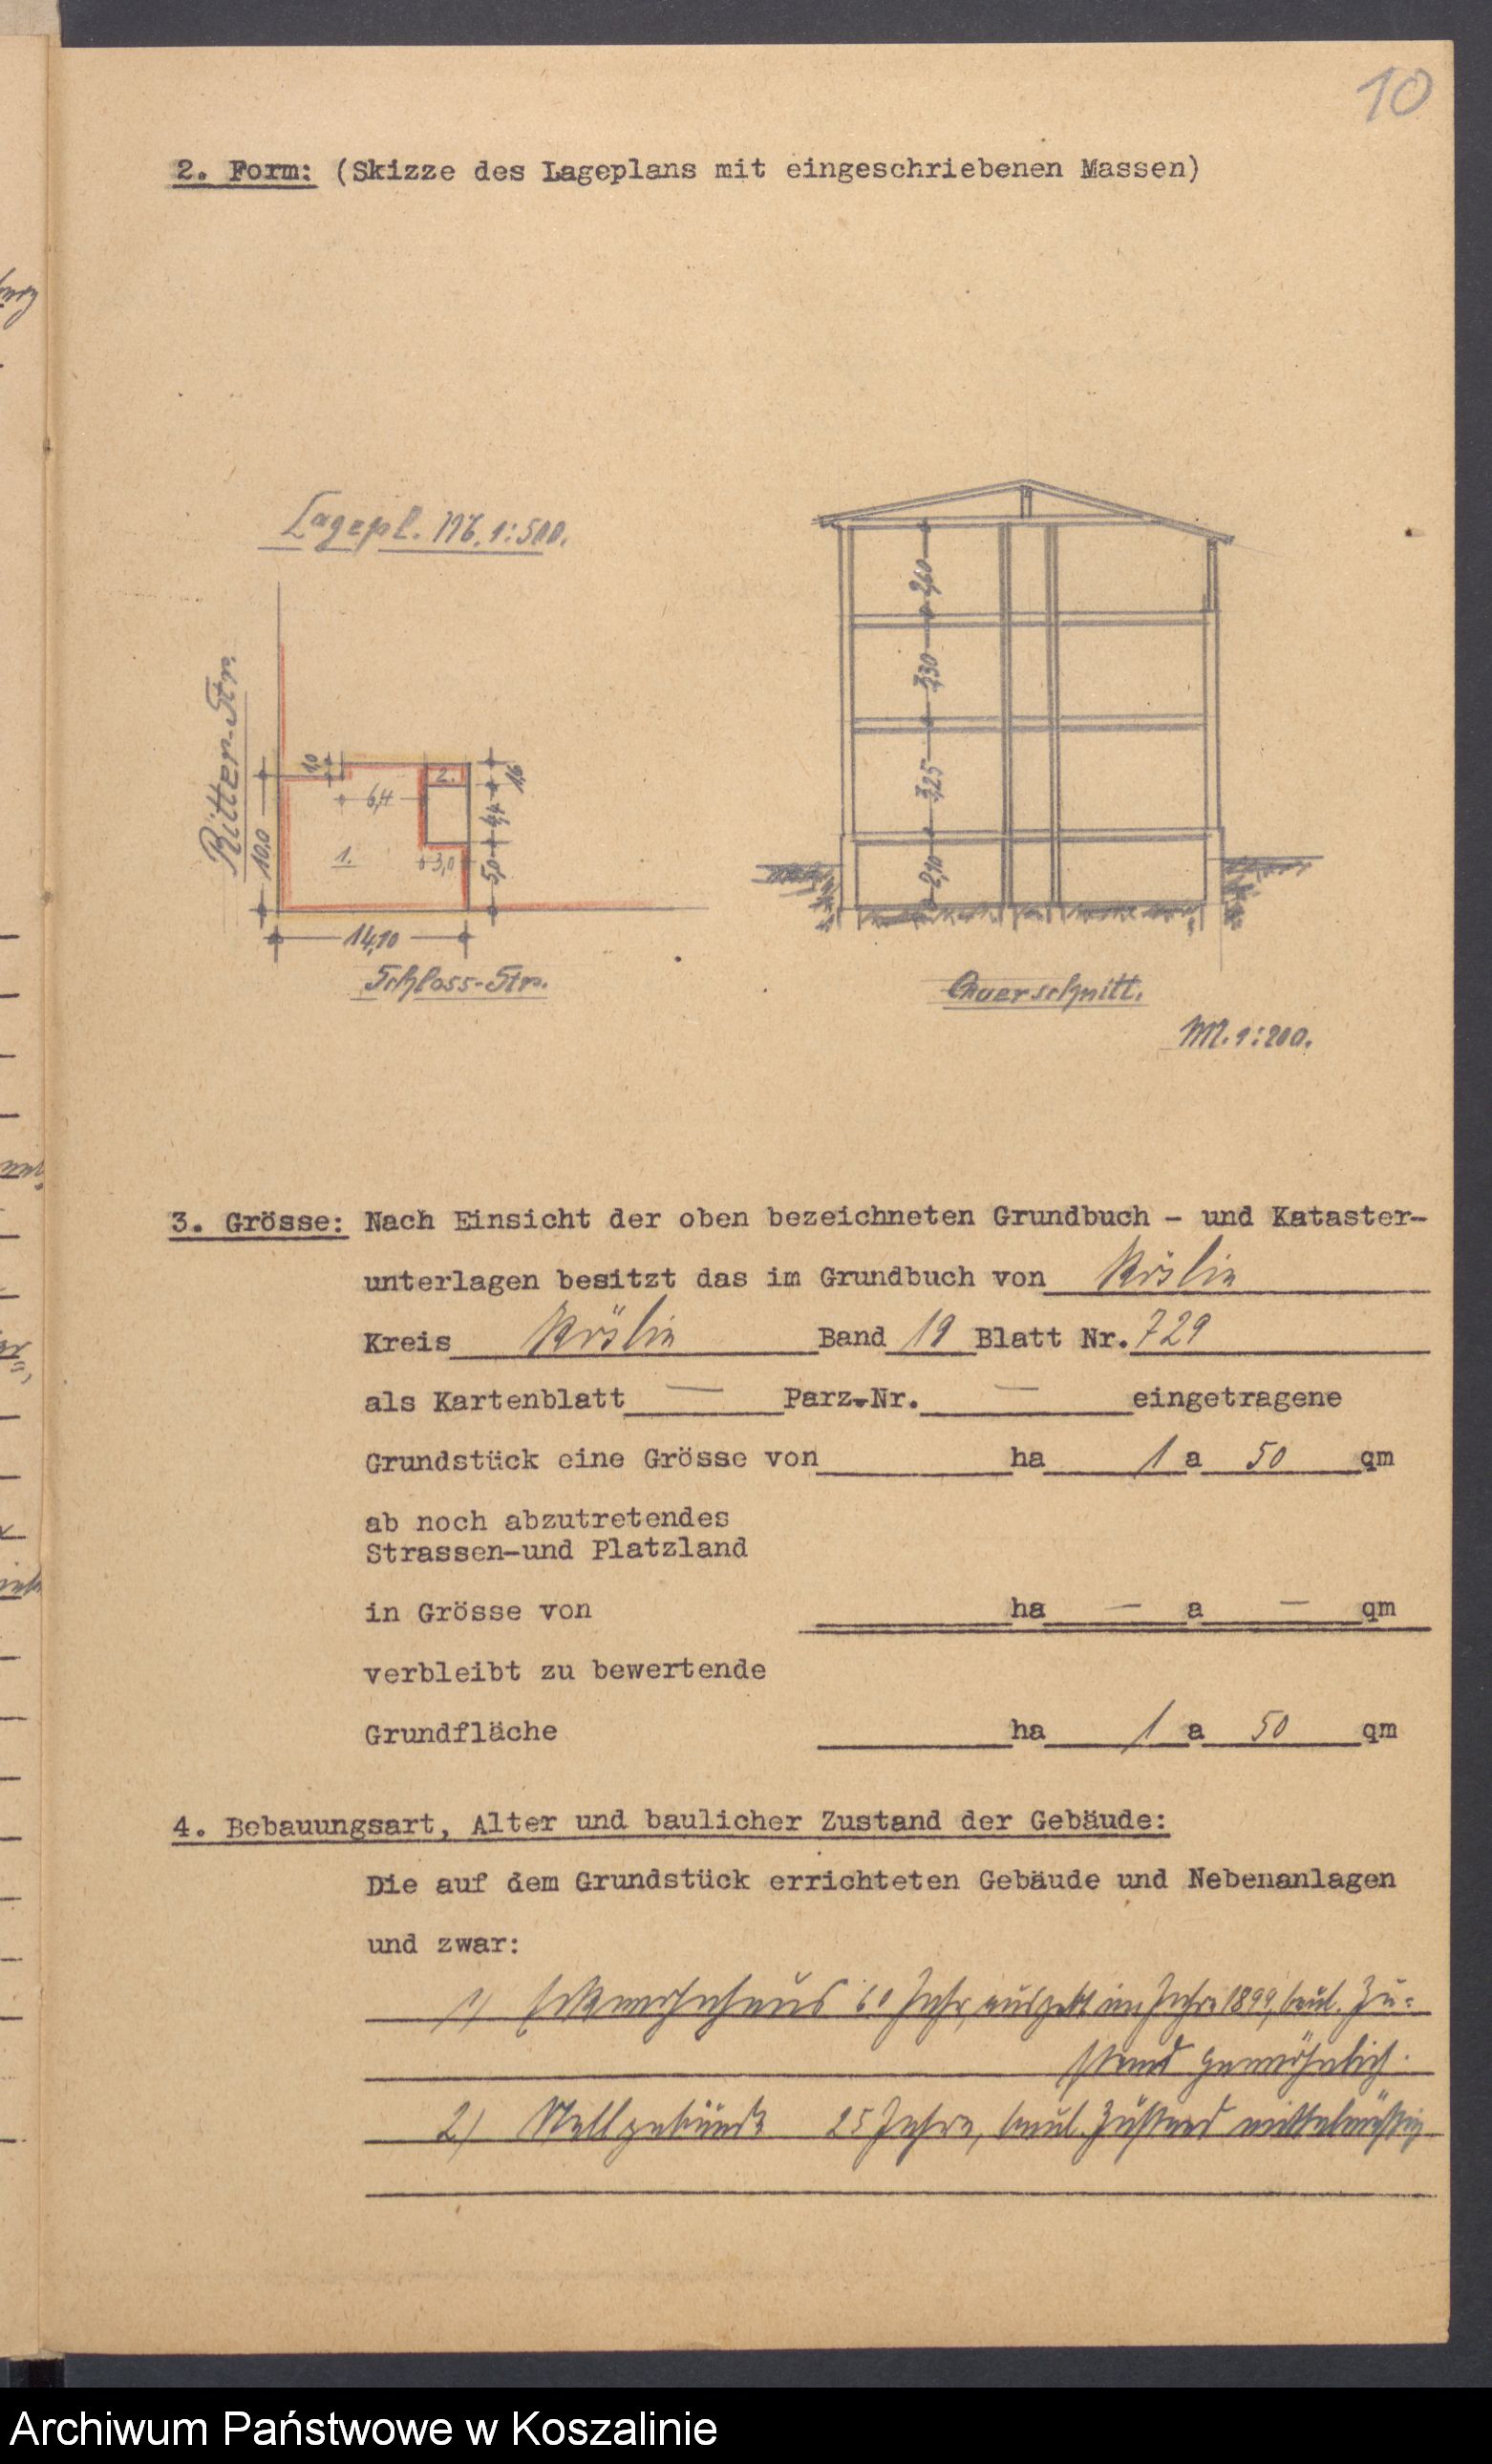 10
2. Form: (Skizze des Lageplans mit eingeschriebenen Massen)
Lagepl. M. 1:500.
Ritter-Str.
10,0
1,0
6,4
2.
1.
3,0
1,6
4,4
5,0
14,10
Schloss-Str.
2,60
3,30
3,25
2,10
Querschnitt.
M. 1:200.
3. Grösse: Nach Einsicht der oben bezeichneten Grundbuch - und Kataster-
unterlagen besitzt das im Grundbuch von Köslin
Kreis Köslin Band 19 Blatt Nr. 729
als Kartenblatt — Parz.-Nr. — eingetragene
Grundstück eine Grösse von ha 1 a 50 qm
ab noch abzutretendes
Strassen-und Platzland
in Grösse von ha — a — qm
verbleibt zu bewertende
Grundfläche ha 1 a 50 qm
4. Bebauungsart, Alter und baulicher Zustand der Gebäude:
Die auf dem Grundstück errichteten Gebäude und Nebenanlagen
und zwar:
1) Eckwohnhaus 60 Jahr, im Jahre 1899, baul. Zu=
stand gewöhnlich.
2) Stallgebäude 25 Jahre, baul. Zustand mittelmässig
Archiwum Państwowe w Koszalinie